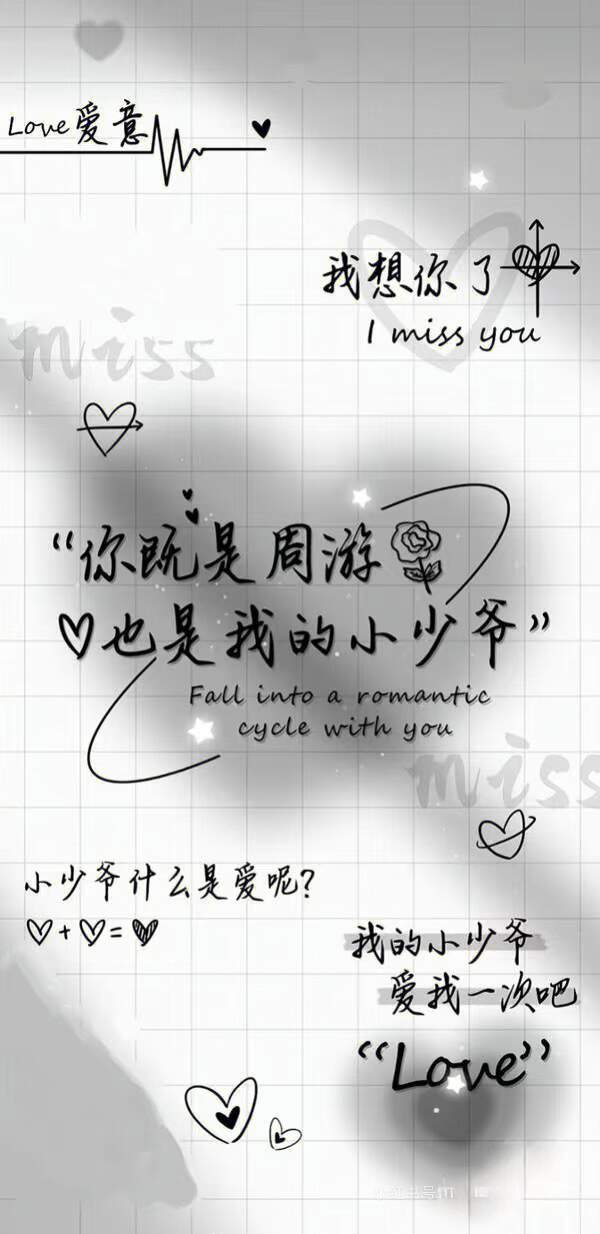 Love爱意
我想你了
I miss you
miss
“你既是周游
也是我的小少爷”
Fall into a romantic
cycle with you
miss
小少爷什么是爱呢?
+ =
我的小少爷
爱我一次吧
“Love”